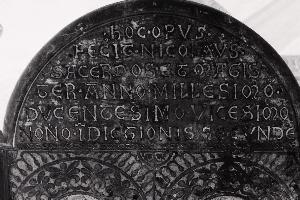 ·HOC OPVS·
FECIT NICOLAVS
SACERDOS ET MAGIS
TER·ANNO·MILLESIMO
DVCENTESIMO VICESIMO
NONO·IDICTIONIS SECVNDE